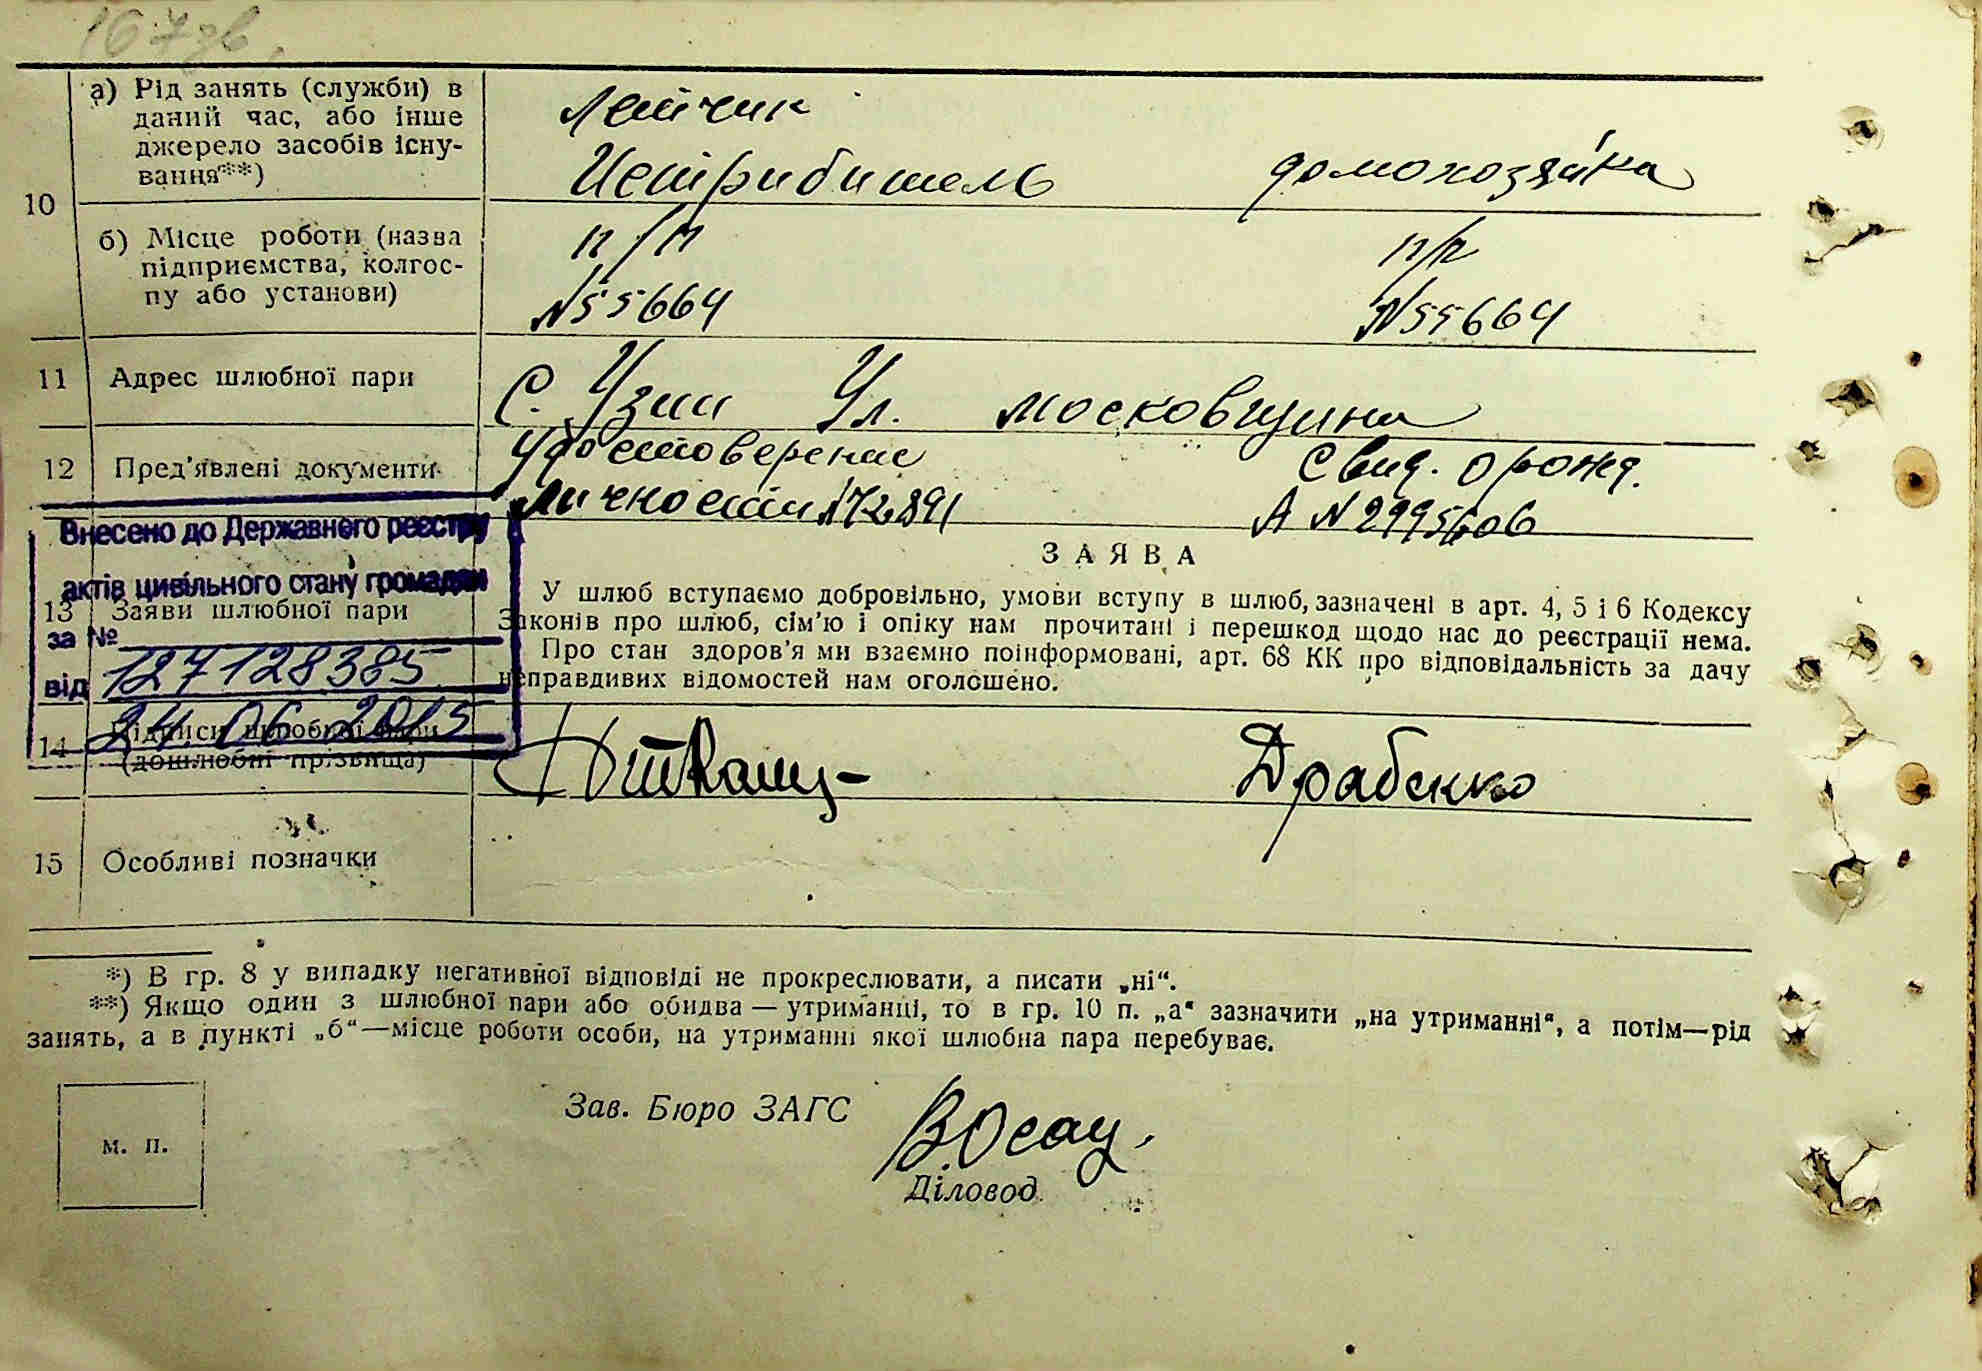 167зв.
а) Рід занять (служби) в
даний час, або інше
джерело засобів існу-
вання**)
Летчик
Истрибитель
домохозяйка
10
б) Місце роботи (назва
підприємства, колгос-
пу або установи)
п/п
№55664
п/п
№55664
11 Адрес шлюбної пари
С. Узин Ул. Московщина
12 Пред'явлені документи
Удостоверение
Личности 172891
Свид. о рожд.
А №2995606
Внесено до Державного реєстру
актів цивільного стану громадян
за №
127128385
від
24 06 2015
13 Заяви шлюбної пари
ЗАЯВА
У шлюб вступаємо добровільно, умови вступу в шлюб, зазначені в арт. 4, 5 і 6 Кодексу
Законів про шлюб, сім'ю і опіку нам прочитані і перешкод щодо нас до реєстрації нема.
Про стан здоров'я ми взаємно поінформовані, арт. 68 КК про відповідальність за дачу
неправдивих відомостей нам оголошено.
14 Підписи шлюбної пари
(дошлюбні прізвища)
Драбенко
15 Особливі позначки
*) В гр. 8 у випадку негативної відповіді не прокреслювати, а писати „ні“.
**) Якщо один з шлюбної пари або обидва — утриманці, то в гр. 10 п. „а“ зазначити „на утриманні“, а потім—рід
занять, а в пункті „б“—місце роботи особи, на утриманні якої шлюбна пара перебуває.
м. п.
Зав. Бюро ЗАГС
В.Осад.
Діловод